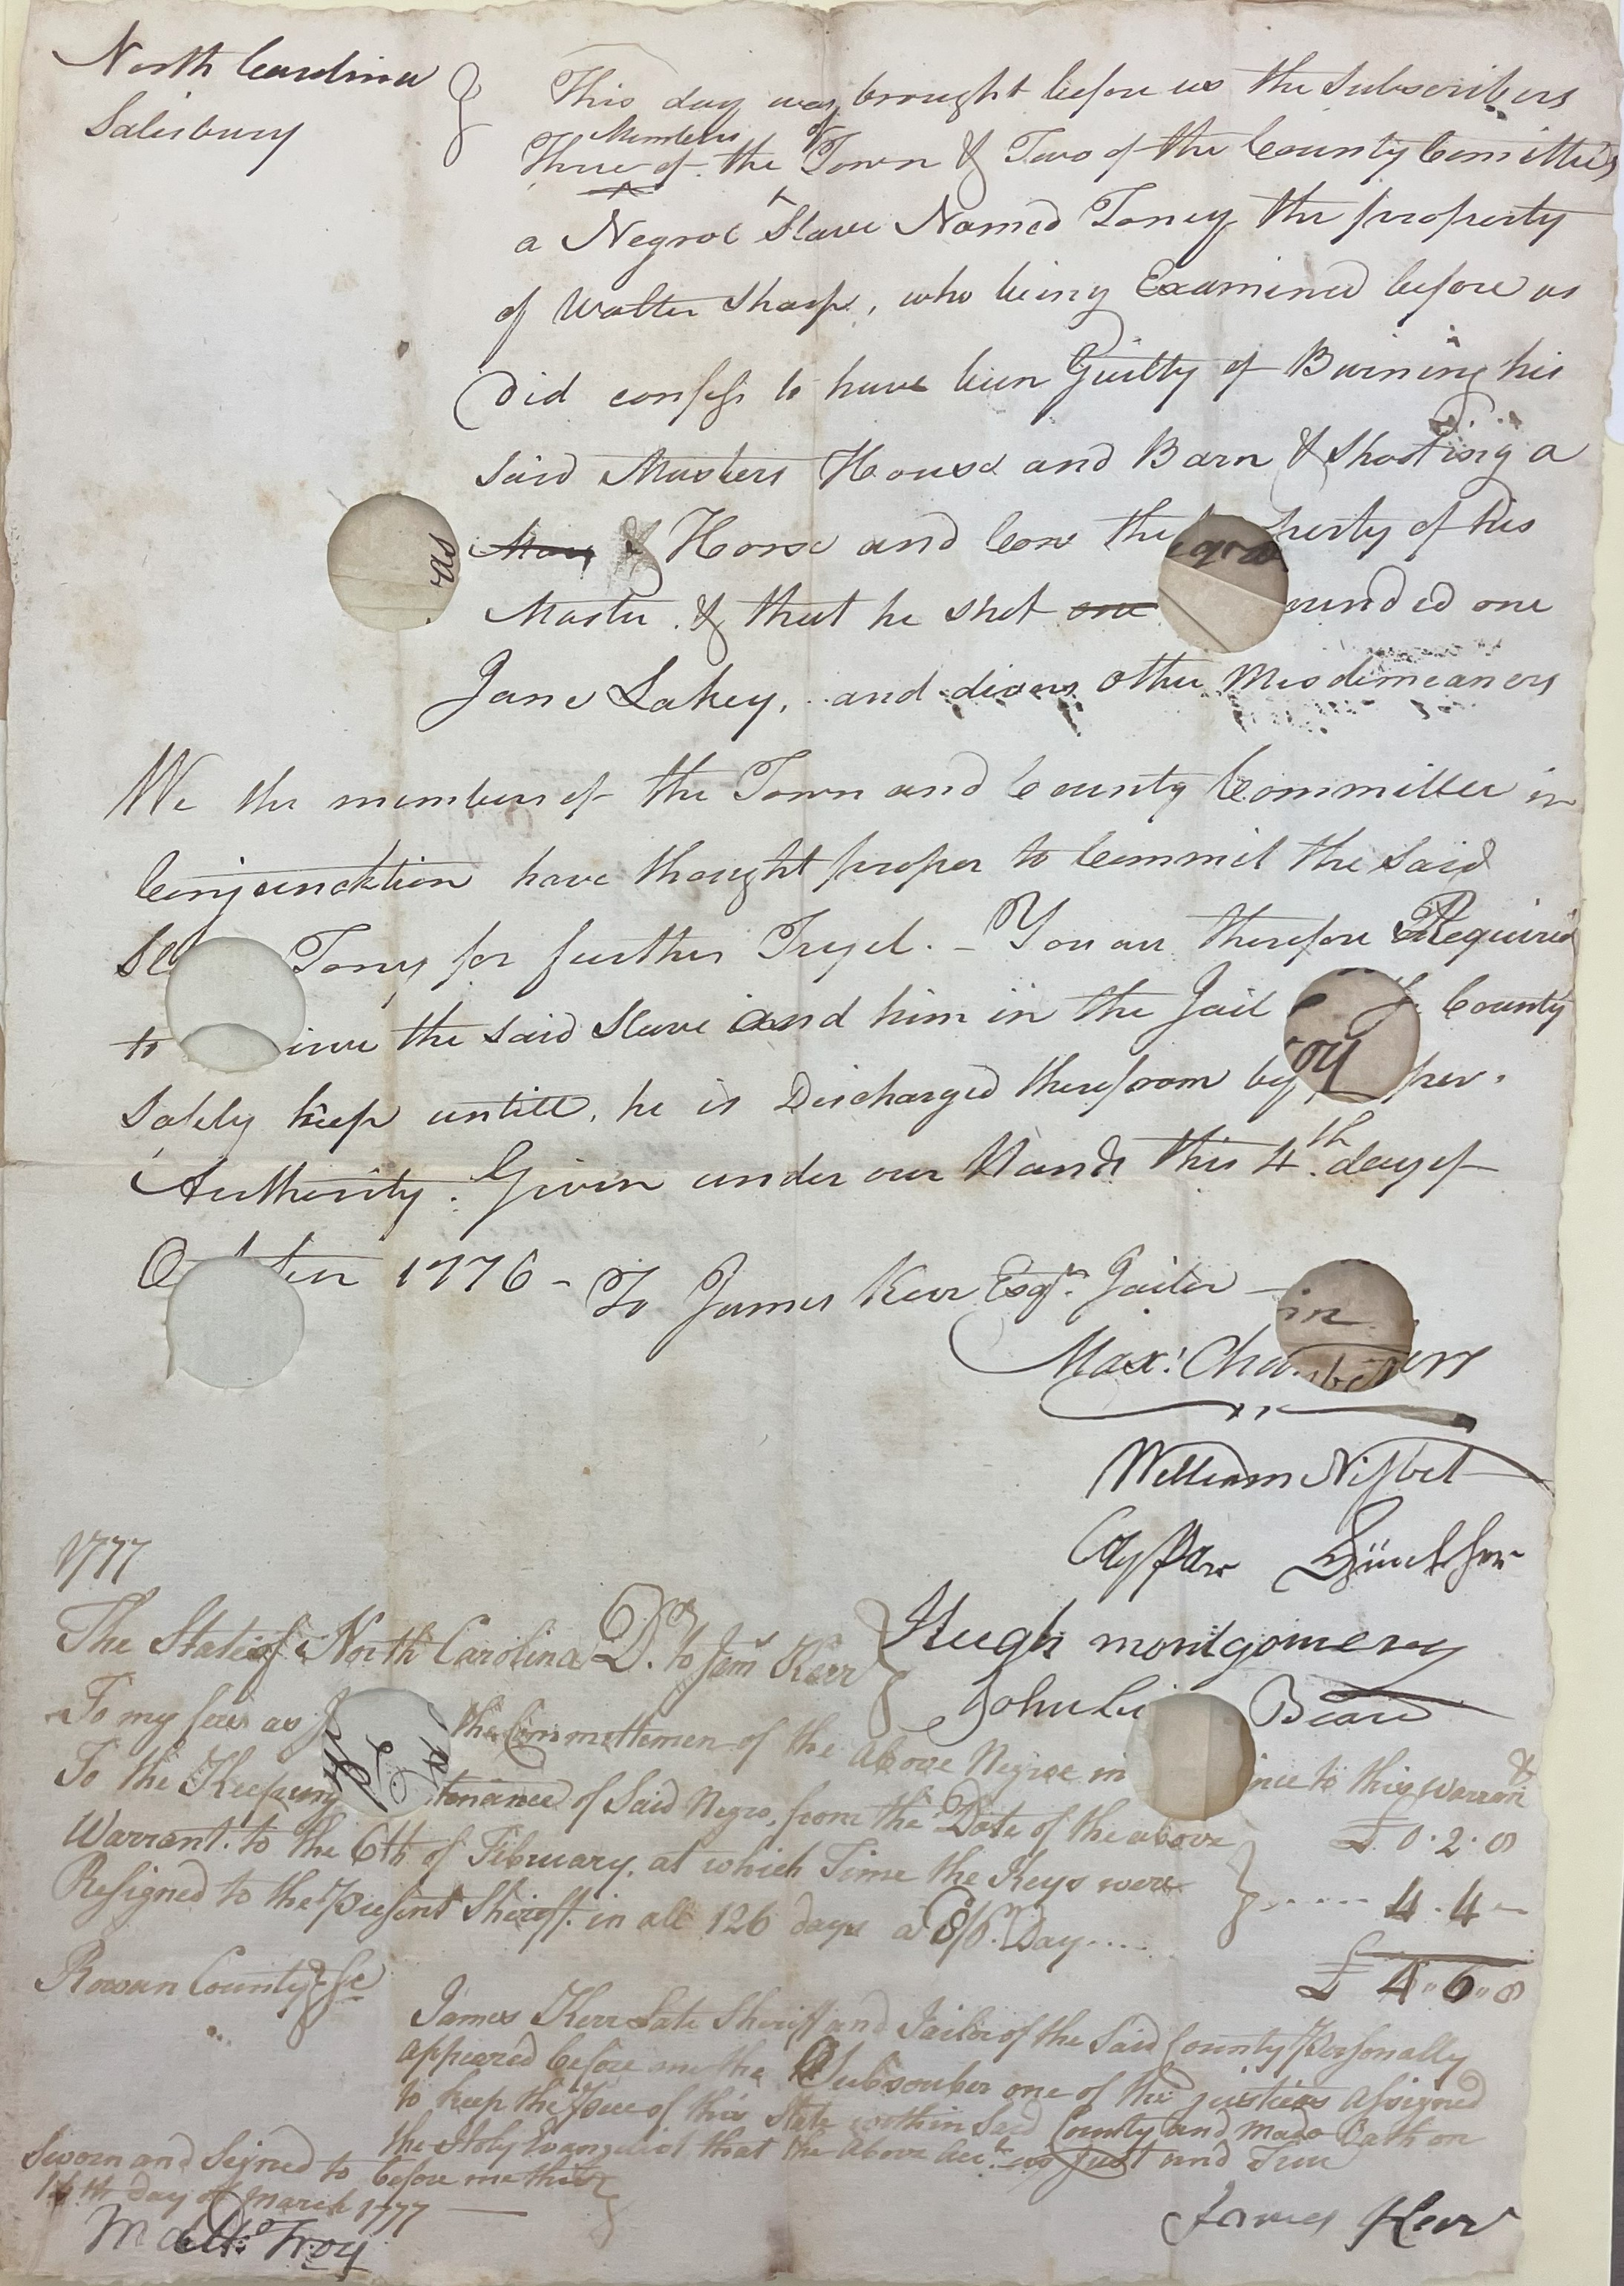 North Carolina
Salisbury
This day was brought before us the Subscribers
Members of
Three of the Town & Two of the County Comittees
a Negroe Slave Named Toney the property
of Walter Sharp, who being Examined before us
Did confess to have been Guilty of Burning his
said Masters House and Barn & Shooting a
Mare & Horse and Cow the perty of his
Master. & that he shot one ounded one
Jane Lakey, and divers other Misdemeaners
We the members of the Town and County Committee in
Conjuncktion have thought proper to Commit the said
Sl Tony for further Tryel. - You are therefore Required
to eive the said Slave and him in the Jail County
Safely keep untill, he is Discharged therefrom by per.
Authority. Given under our Hands this 4th. day of
October 1776 - To James Kerr Esqr. Jailor
Max: Chambers
William Nisbet
Hugh montgomery
John Le Beard
1777
The State of North Carolina Dr. to Jams Kerr
To my fees as J the Committemen of the above Negroe in ince to this Warrant
£ 0.2.8
To the Keeping tenance of Said Negro, from the Date of the above
Warrant. to the 6th of February, at which Time the Keys were
Resigned to the Present Sheriff. in all 126 days a 8/pr. Day.....
4.4-
£ 4.6.8
Rowan County Sc
James Kerr Late Sheriff and Jailor of the Said County Personally
appeared before me the Subscriber one of the justices assigned
to keep the Peace of this State within Said County and made Oath on
the Holy Evangelist that the above Acct. is Just and True
Sworn and Signed to before me this
14th day of March 1777
James Kerr
Matt: Troy